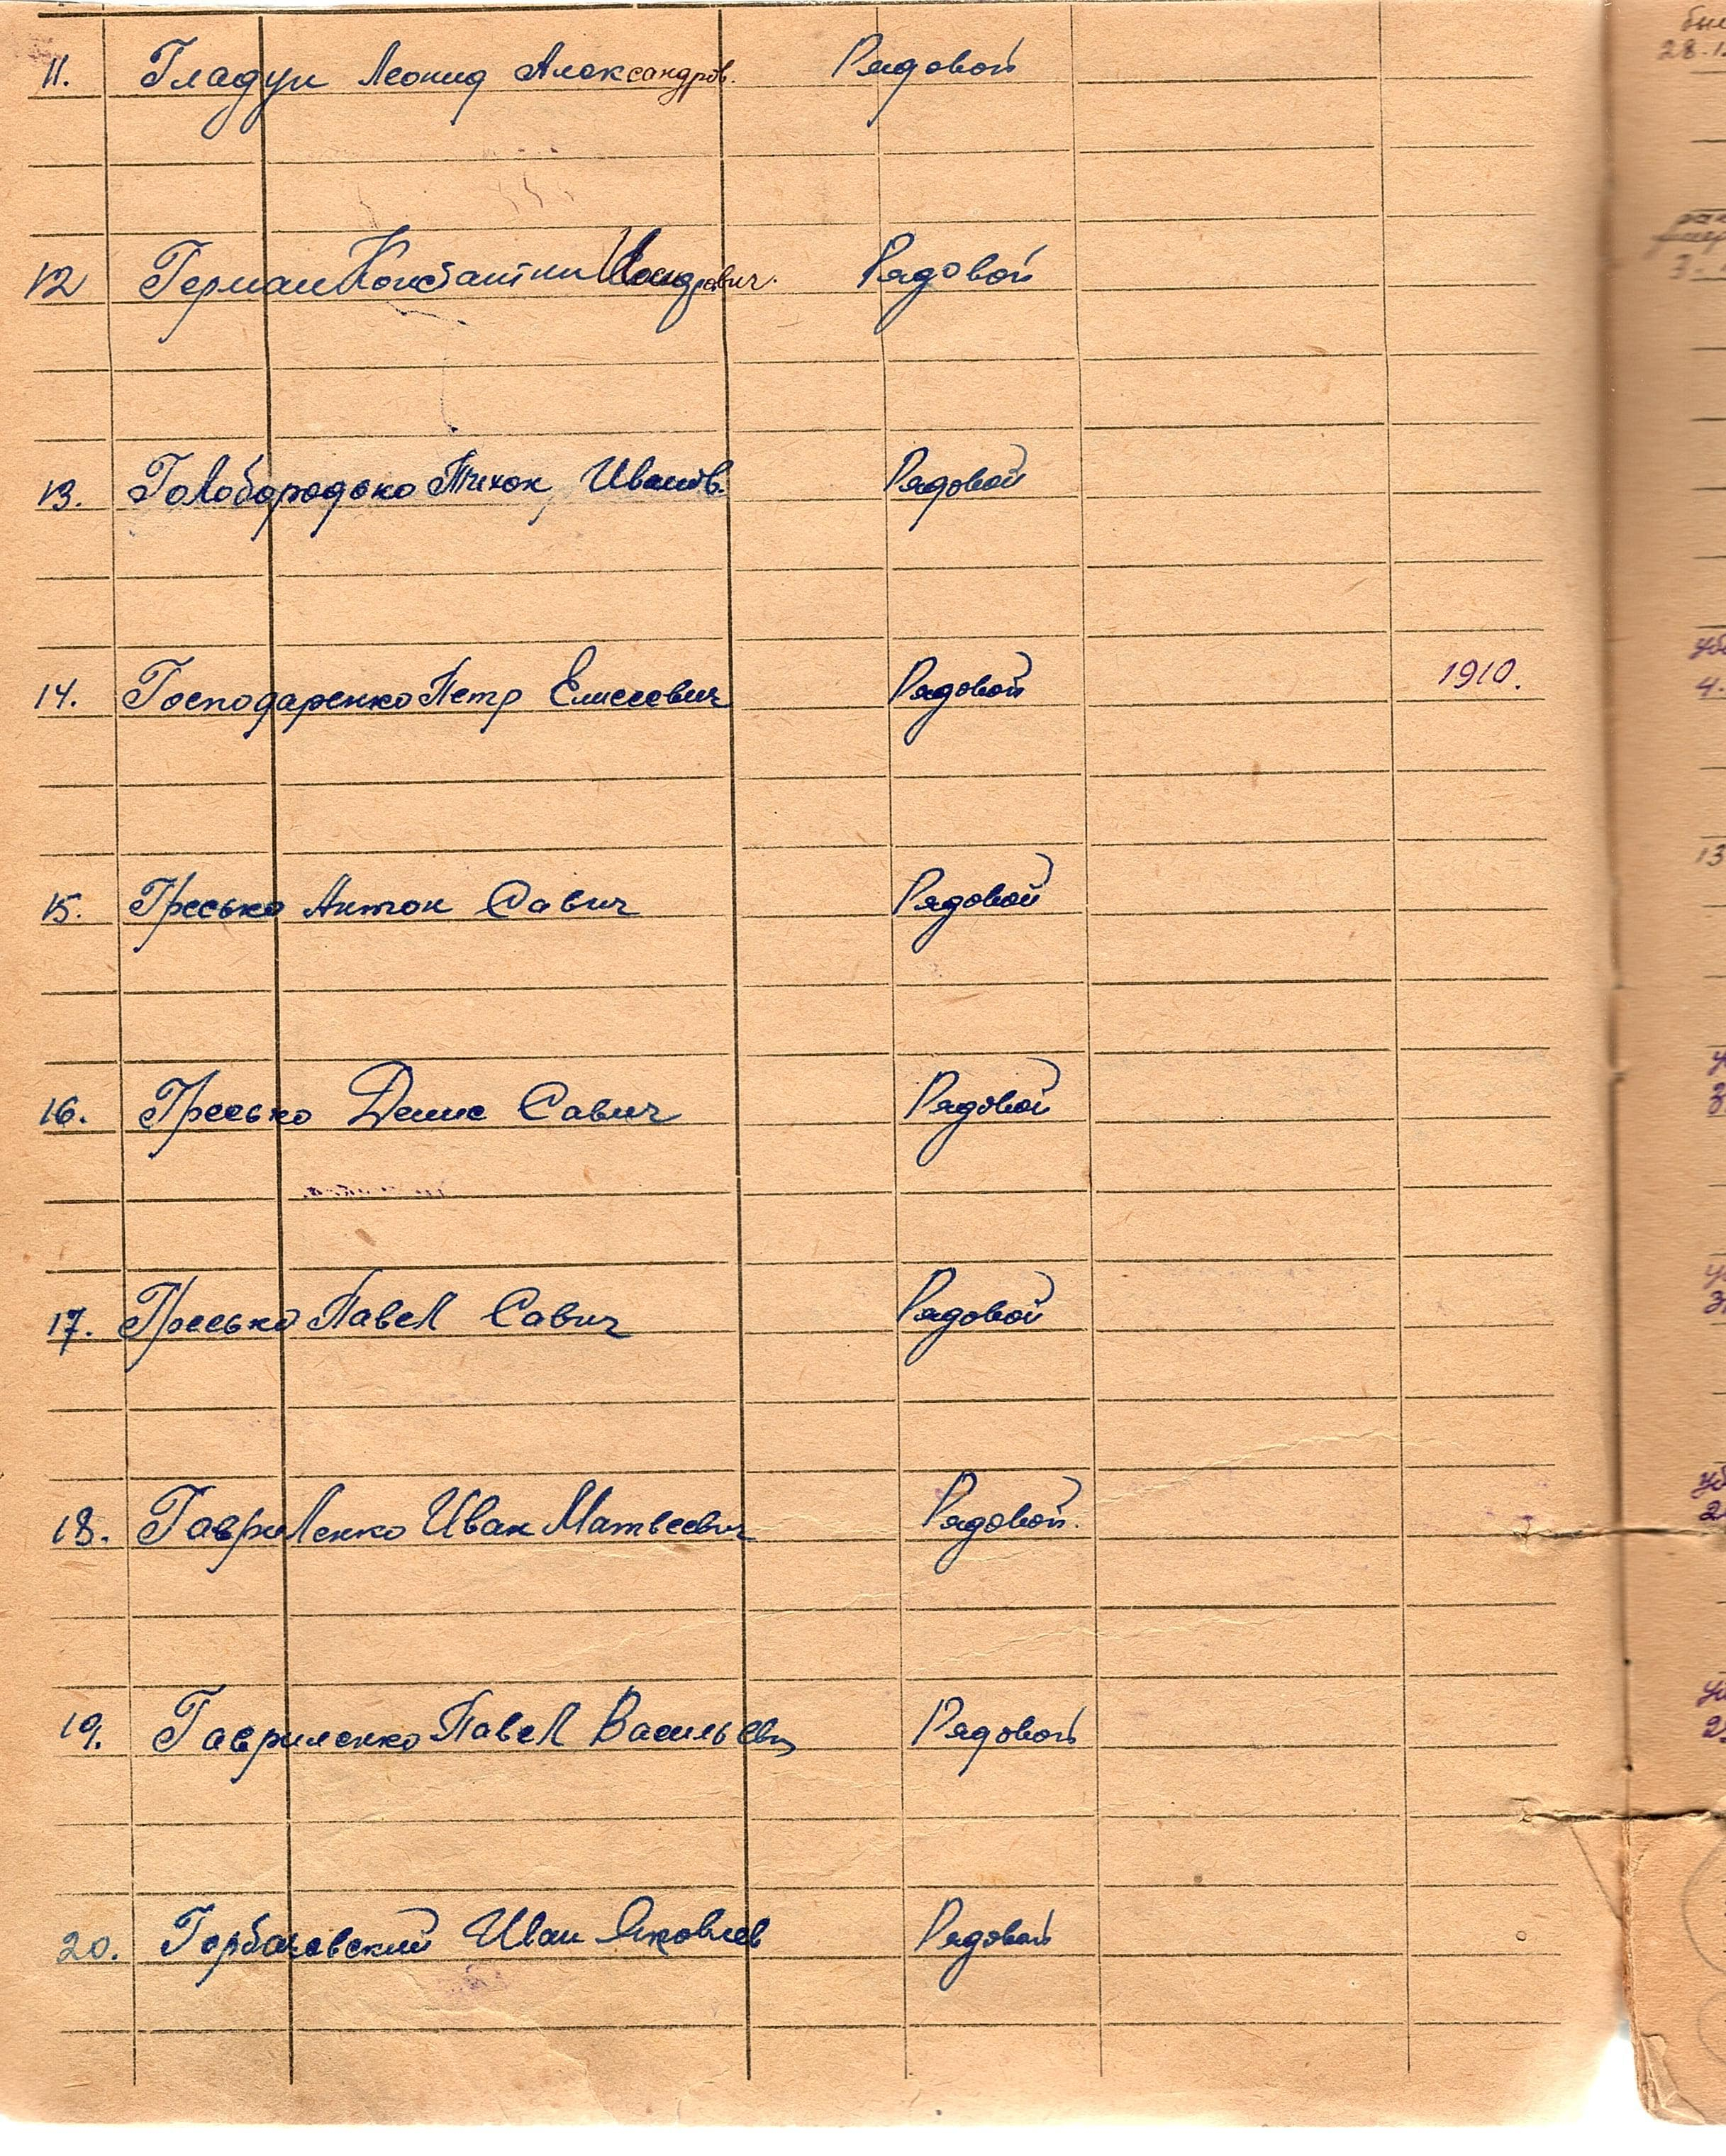 11. Гладун Леонид Александров. Рядовой
12 Герман Константин Рядовой
13. Голобородько Тихон Иванов. Рядовой
14. Господаренко Петр Елисеевич Рядовой 1910.
15. Гресько Антон Савич Рядовой
16. Гресько Денис Савич Рядовой
17. Гресько Павел Савич Рядовой
18. Гавриленко Иван Матвеевич Рядовой.
19. Гавриленко Павел Васильевич Рядовой
20. Горбачевский Иван Яковлев Рядовой